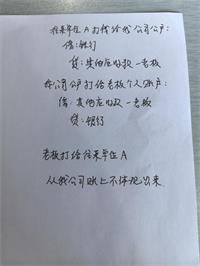 往来单位A打钱给我公司公户:
借:银行
贷:其他应付款—老板
我公司公户打给老板个人账户:
借:其他应付款—老板
贷:银行
老板打给往来单位A
从我公司账上不体现出来